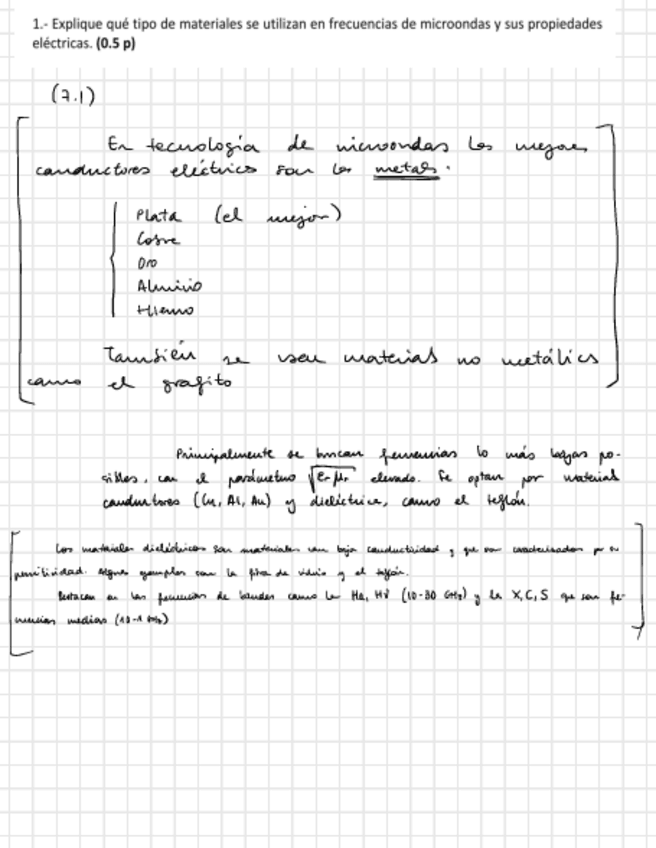 1.- Explique qué tipo de materiales se utilizan en frecuencias de microondas y sus propiedades
eléctricas. (0.5 p)
(7.1)
En tecnología de microondas los mejores
conductores eléctricos son los metales.
Plata (el mejor)
Cobre
Oro
Aluminio
Hierro
También se usan materiales no metálicos
como el grafito
Principalmente se buscan frecuencias lo más bajas po-
sibles, con el parámetro √εr·μr elevado. Se optan por material
conductores (Cu, Al, Au) y dieléctrico, como el teflón.
Los materiales dieléctricos son materiales con baja conductividad y que son caracterizados por su
permitividad. Algunos ejemplos son la fibra de vidrio y el teflón.
Destacan en las frecuencias de bandas como la (10-30 GHz) y la X, C, S que son fre-
cuencias medias